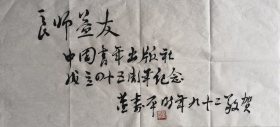 良师益友
中国青年出版社
成立四十五周年纪念
董寿平时年九十二敬贺